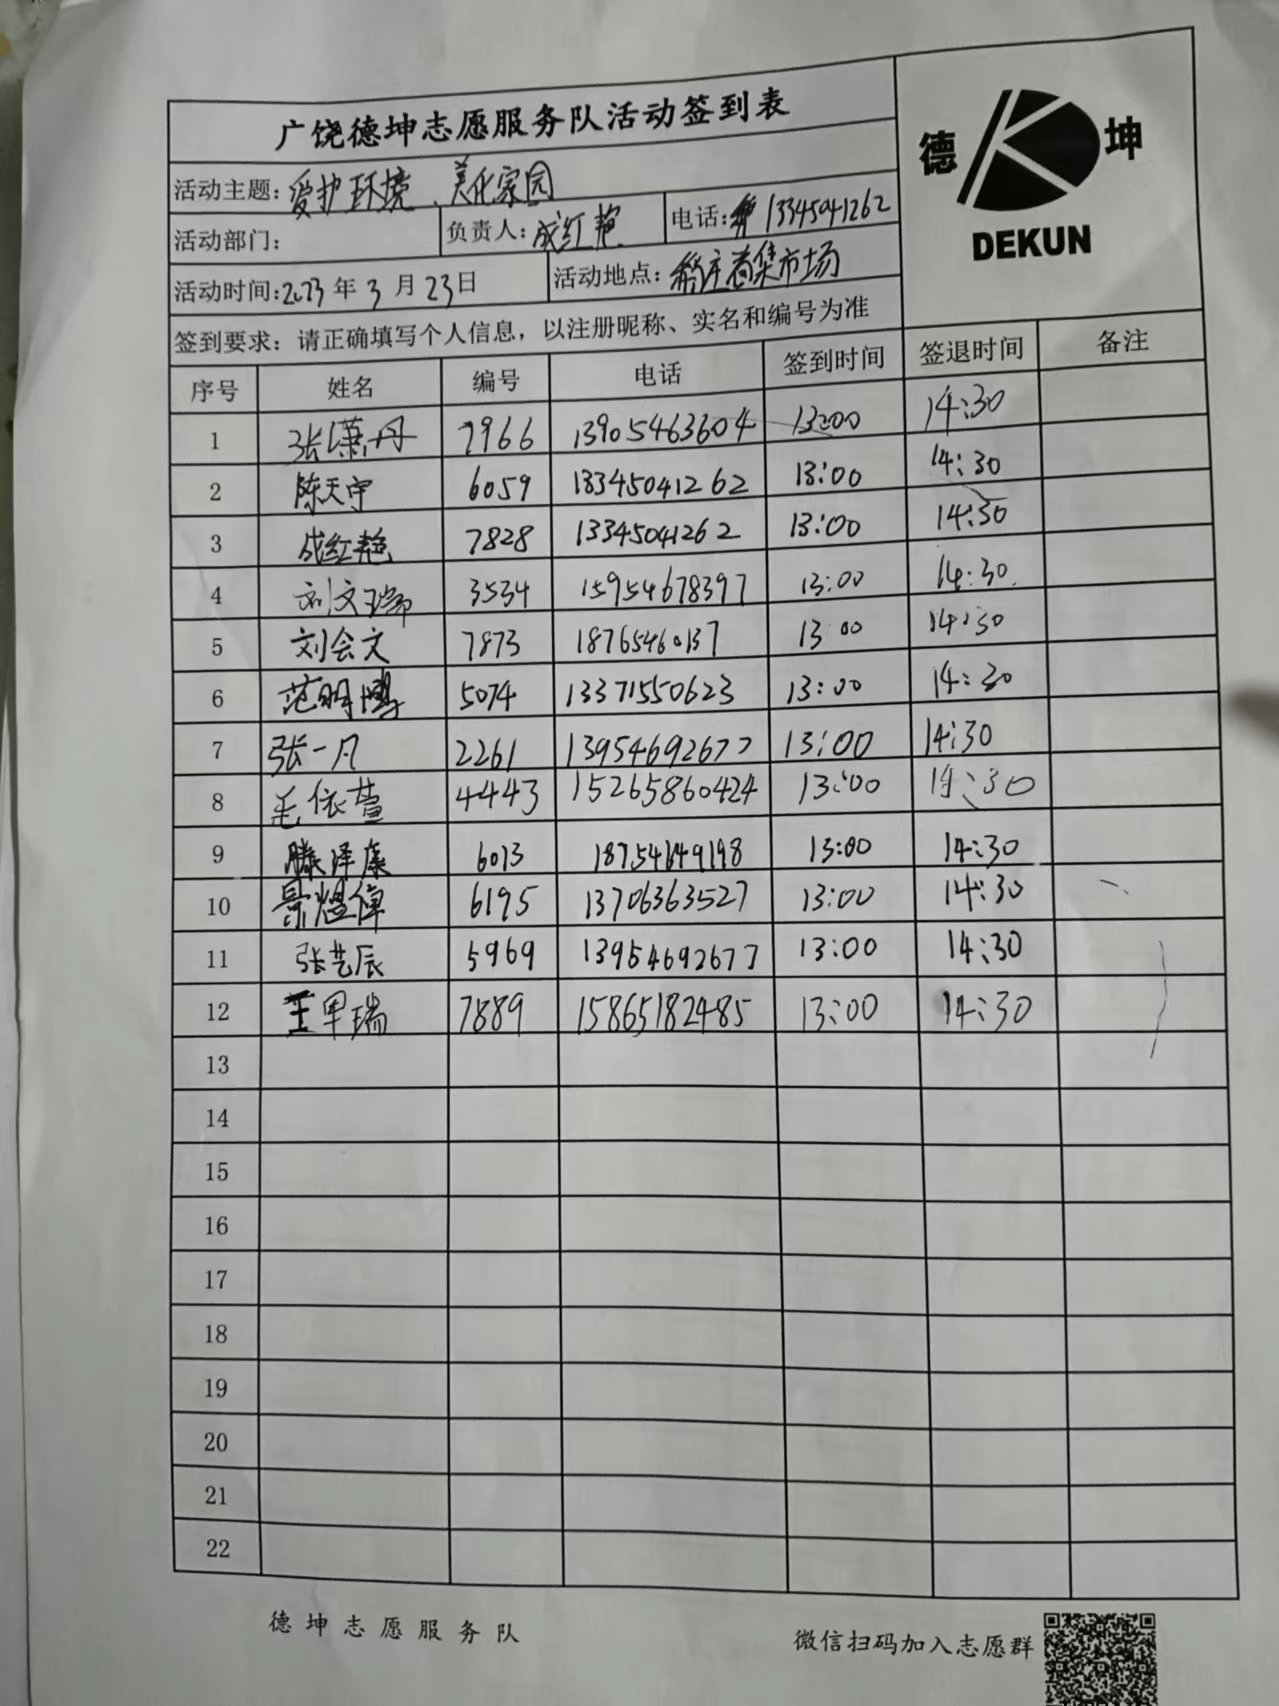 广饶德坤志愿服务队活动签到表
德 坤
DEKUN
活动主题:爱护环境、美化家园
活动部门: 负责人:成红艳 电话:13345041262
活动时间:2023年3月23日 活动地点:集市场
签到要求:请正确填写个人信息,以注册昵称、实名和编号为准
序号 姓名 编号 电话 签到时间 签退时间 备注
1 张潇丹 7966 13905463604 13:00 14:30
2 陈天宇 6059 13345041262 13:00 14:30
3 成红艳 7828 13345041262 13:00 14:30
4 刘文瑞 3534 15954678397 13:00 14:30
5 刘会文 7873 18765460137 13:00 14:30
6 范明博 5074 13371550623 13:00 14:30
7 张一凡 2261 13954692677 13:00 14:30
8 毛依萱 4443 15265860424 13:00 14:30
9 滕泽康 6013 18754649198 13:00 14:30
10 景煜倬 6195 13706363527 13:00 14:30
11 张艺辰 5969 13954692677 13:00 14:30
12 王甲瑞 7889 15865182485 13:00 14:30
13
14
15
16
17
18
19
20
21
22
德坤志愿服务队
微信扫码加入志愿群